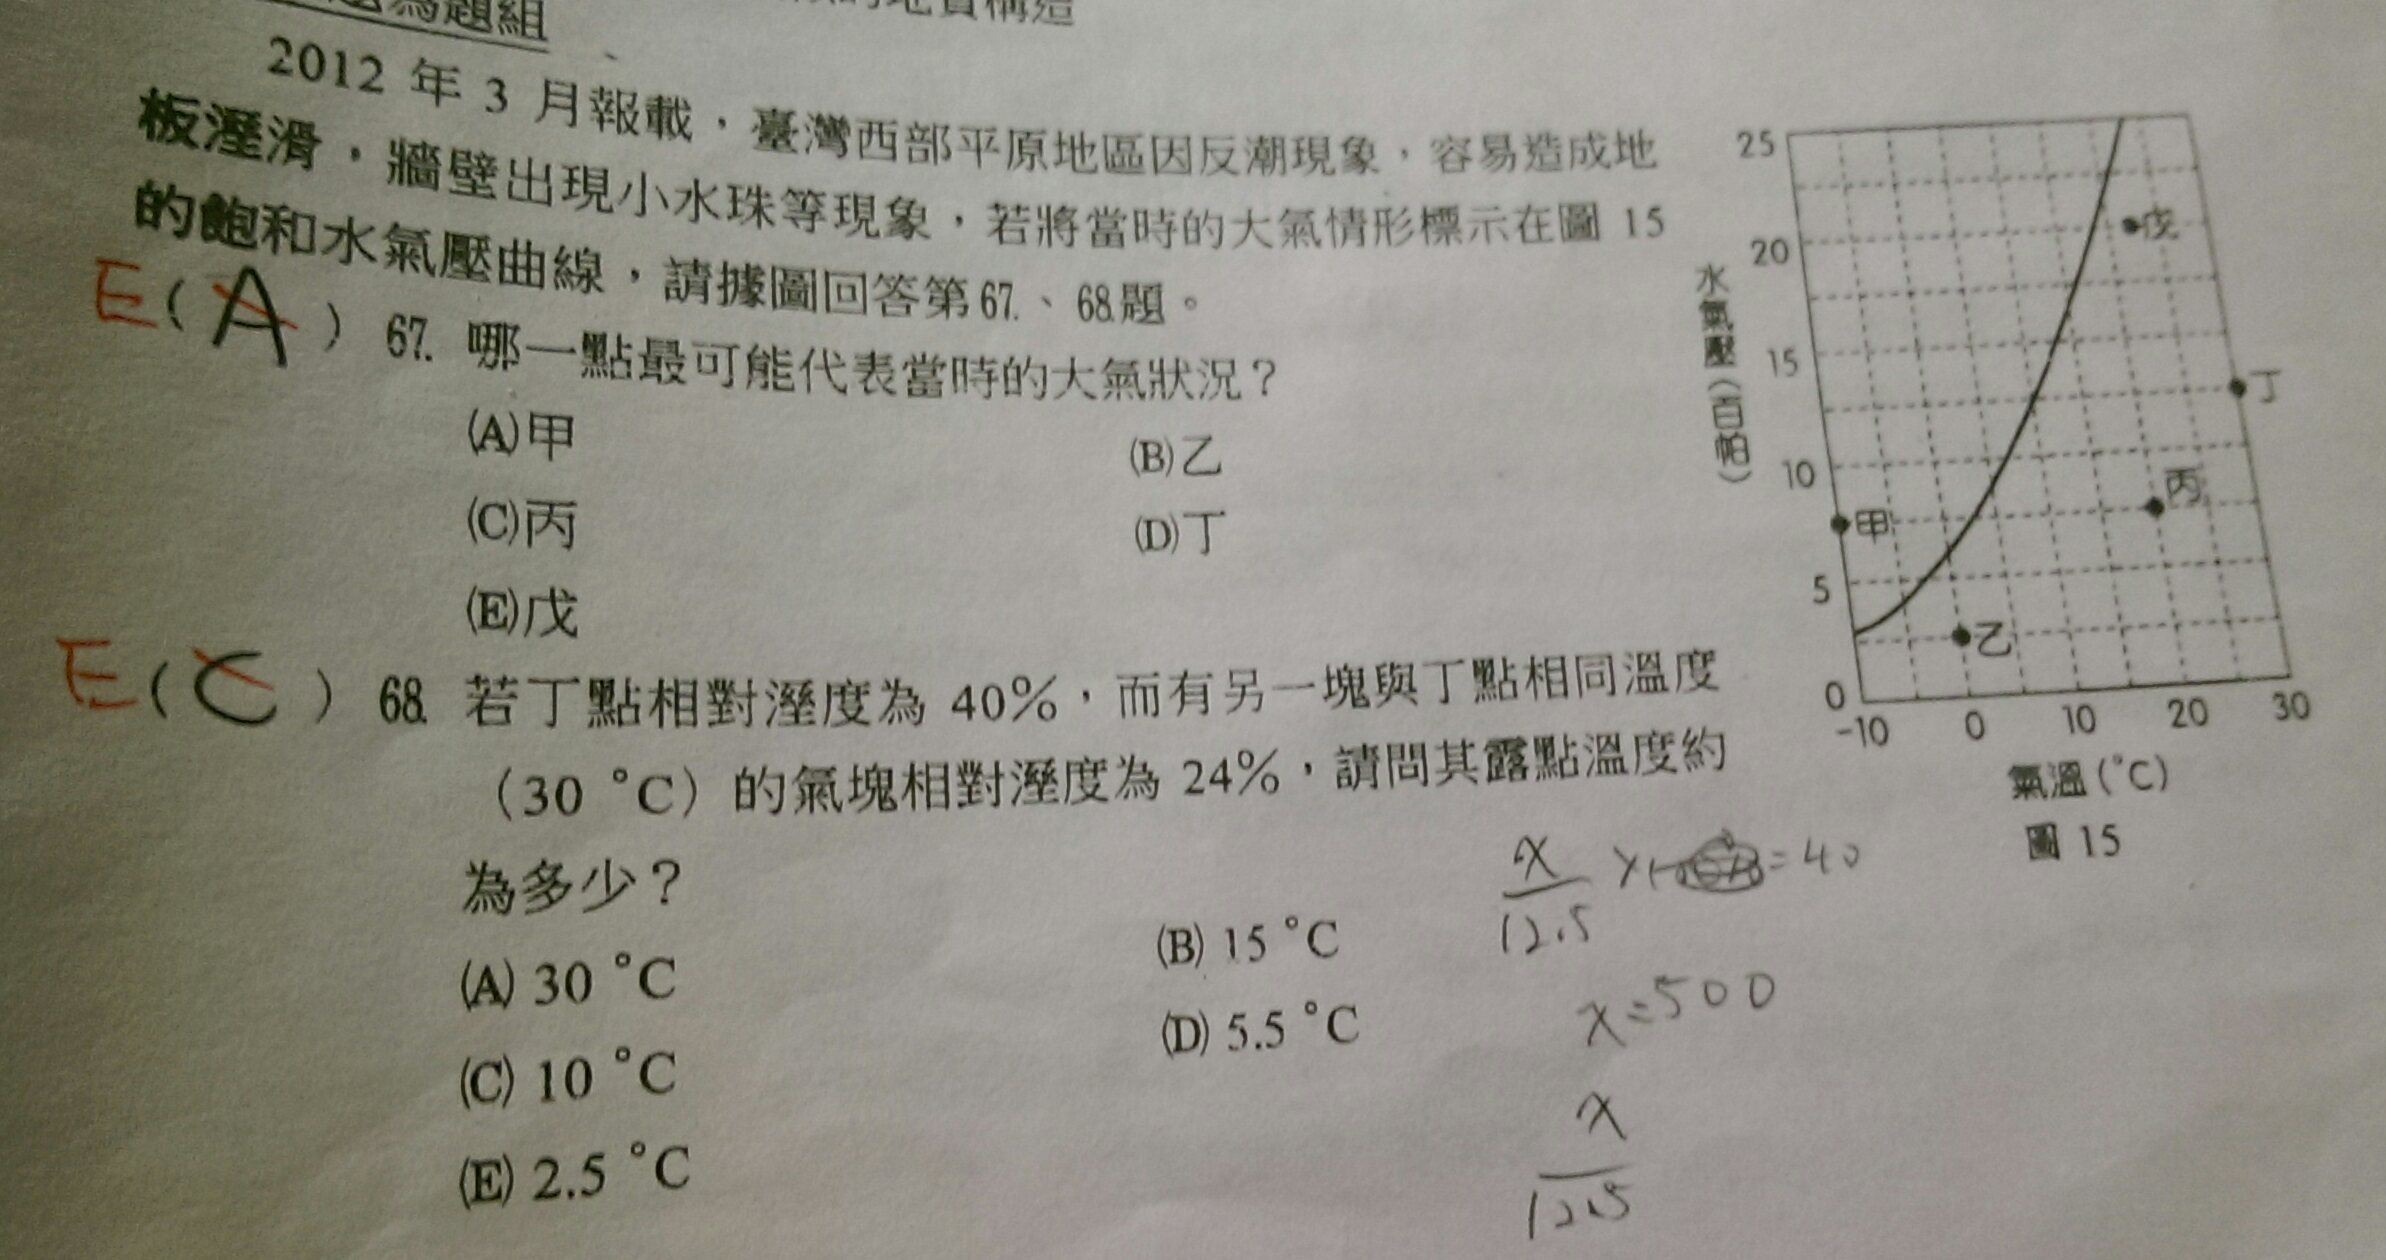 為題組
2012 年 3 月報載，臺灣西部平原地區因反潮現象，容易造成地
板溼滑，牆壁出現小水珠等現象，若將當時的大氣情形標示在圖 15
的飽和水氣壓曲線，請據圖回答第67.、68.題。
E ( A ) 67. 哪一點最可能代表當時的大氣狀況？
(A)甲
(B)乙
(C)丙
(D)丁
(E)戊
E ( C ) 68. 若丁點相對溼度為 40%，而有另一塊與丁點相同溫度
（30 °C）的氣塊相對溼度為 24%，請問其露點溫度約
為多少？
(A) 30 °C
(B) 15 °C
(C) 10 °C
(D) 5.5 °C
(E) 2.5 °C
水氣壓(百帕)
25
20
15
10
5
0
-10 0 10 20 30
氣溫(°C)
圖 15
甲
乙
丙
丁
戊
x
12.5
= 40
x = 500
x
12.5